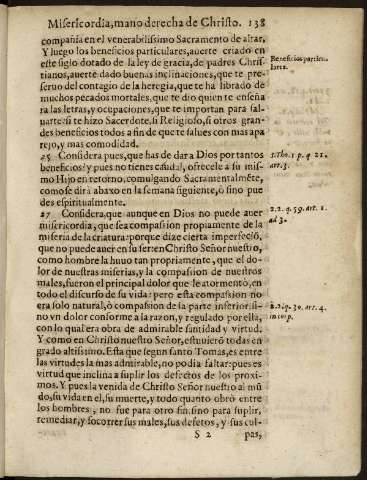 Misericordia, mano derecha de Christo. 138
compañia en el venerabilissimo Sacramento de altar,
Y luego los beneficios particulares, auerte criado en
este siglo dotado de la ley de gracia, de padres Chris-
tianos, auerte dado buenas inclinaciones, que te pre-
seruo del contagio de la heregia, que te ha librado de
muchos pecados mortales, que te dio quien te enseña
ra las letras, y ocupaciones, que te importan para sal-
uarte: si te hizo Sacerdote, ò Religioso, si otros gran-
des beneficios todos a fin de que te salues con mas apa
rejo, y mas comodidad.
Beneficios particulares.
25 Considera pues, que has de dar a Dios por tantos
beneficios: y pues no tienes caudal, ofrecele a su mis-
mo Hijo en retorno, comulgando Sacramentalmẽte,
como se dirà abaxo en la semana siguiente, ò sino pue
des espiritualmente.
1. Tho. 1 p. q. 21.
art. 3.
27 Considera, que aunque en Dios no puede auer
misericordia, que sea compassion propiamente de la
miseria de la criatura: porque dize cierta imperfeciõ,
que no puede auer en su ser: en Christo Señor nuestro,
como hombre la huuo tan propriamente, que el do-
lor de nuestras miserias, y la compassion de nuestros
males, fueron el principal dolor que le atormentò, en
todo el discurso de su vida: pero esta compassion no
era solo natural, ò compassion de la parte inferior: si-
no vn dolor conforme a la razon, y regulado por ella,
con lo qual era obra de admirable santidad y virtud.
Y como en Christo nuestro Señor, estuuierõ todas en
grado altissimo. Esta que segun santo Tomas, es entre
las virtudes la mas admirable, no podia faltar: pues es
virtud que inclina a suplir los defectos de los proxi-
mos. Y pues la venida de Christo Señor nuestro al mũ
do, su vida en el, su muerte, y todo quanto obrò entre
los hombres, no fue para otro fin, sino para suplir,
remediar, y socorrer sus males, sus defetos, y sus cul-
2. 2. q. 59. art. 1.
ad 3.
2. 2. q. 30. art. 4.
in corp.
S 2 pas,